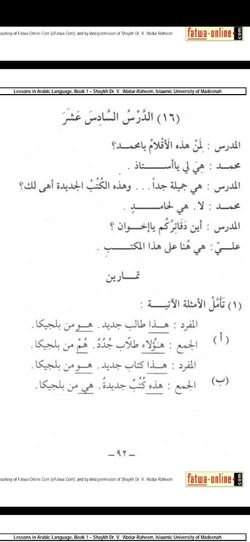 ourtesy of Fatwa-Online.Com (eFatwa.Com), and by kind permission of Shaykh Dr. V. 'Abdur-Raheem
fatwa-online.com
Lessons in Arabic Language, Book 1 – Shaykh Dr. V. 'Abdur-Raheem, Islaamic University of Madeenah
(١٦) الدَّرْسُ السَّادِسَ عَشَرَ
المدرس : لِمَنْ هذه الأَقْلامُ يامحمد؟
محمـد : هِيَ لي ياأسـتـاذ .
المدرس : هي جميلة جداً . . . وهذه الكُتُبُ الجديدة أهى لك؟
محمـد : لا. هي لحامـدٍ .
المدرس : أين دَفَاتِرُكُم ياإخوان ؟
علـيّ : هي هُنا على هذا المكتـب .
تمـاريـن
(١) تَأَمَّلْ الأمثلة الآتيـة :
(أ)
المفرد : هـذا طالب جديد. هـو من بلجيكا.
الجمع : هـؤُلاء طُلَّاب جُدُدٌ. هُمْ من بلجيكا.
(ب)
المفرد : هـذا كتاب جديد. هـو من بلجيكا.
الجمع : هذه كُتُبٌ جديدةٌ. هي من بلجيكا.
– ٩٢ –
ourtesy of Fatwa-Online.Com (eFatwa.Com), and by kind permission of Shaykh Dr. V. 'Abdur-Raheem
fatwa-online.com
Lessons in Arabic Language, Book 1 – Shaykh Dr. V. 'Abdur-Raheem, Islaamic University of Madeenah